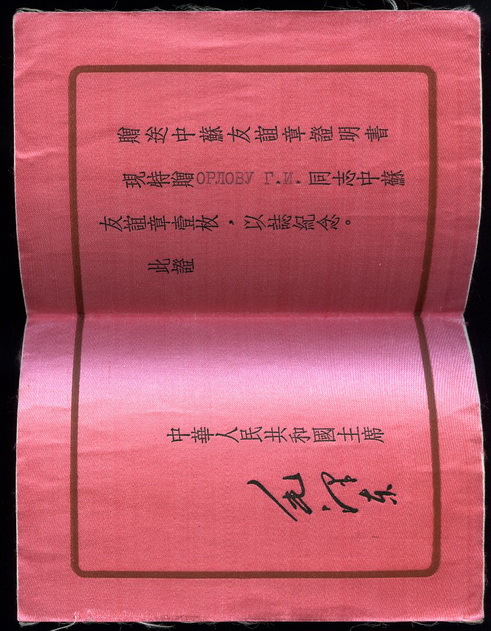 贈送中蘇友誼章證明書
現特贈ОРЛОВУ Г.И.同志中蘇
友誼章壹枚，以誌紀念。
此證
中華人民共和國主席
毛澤东